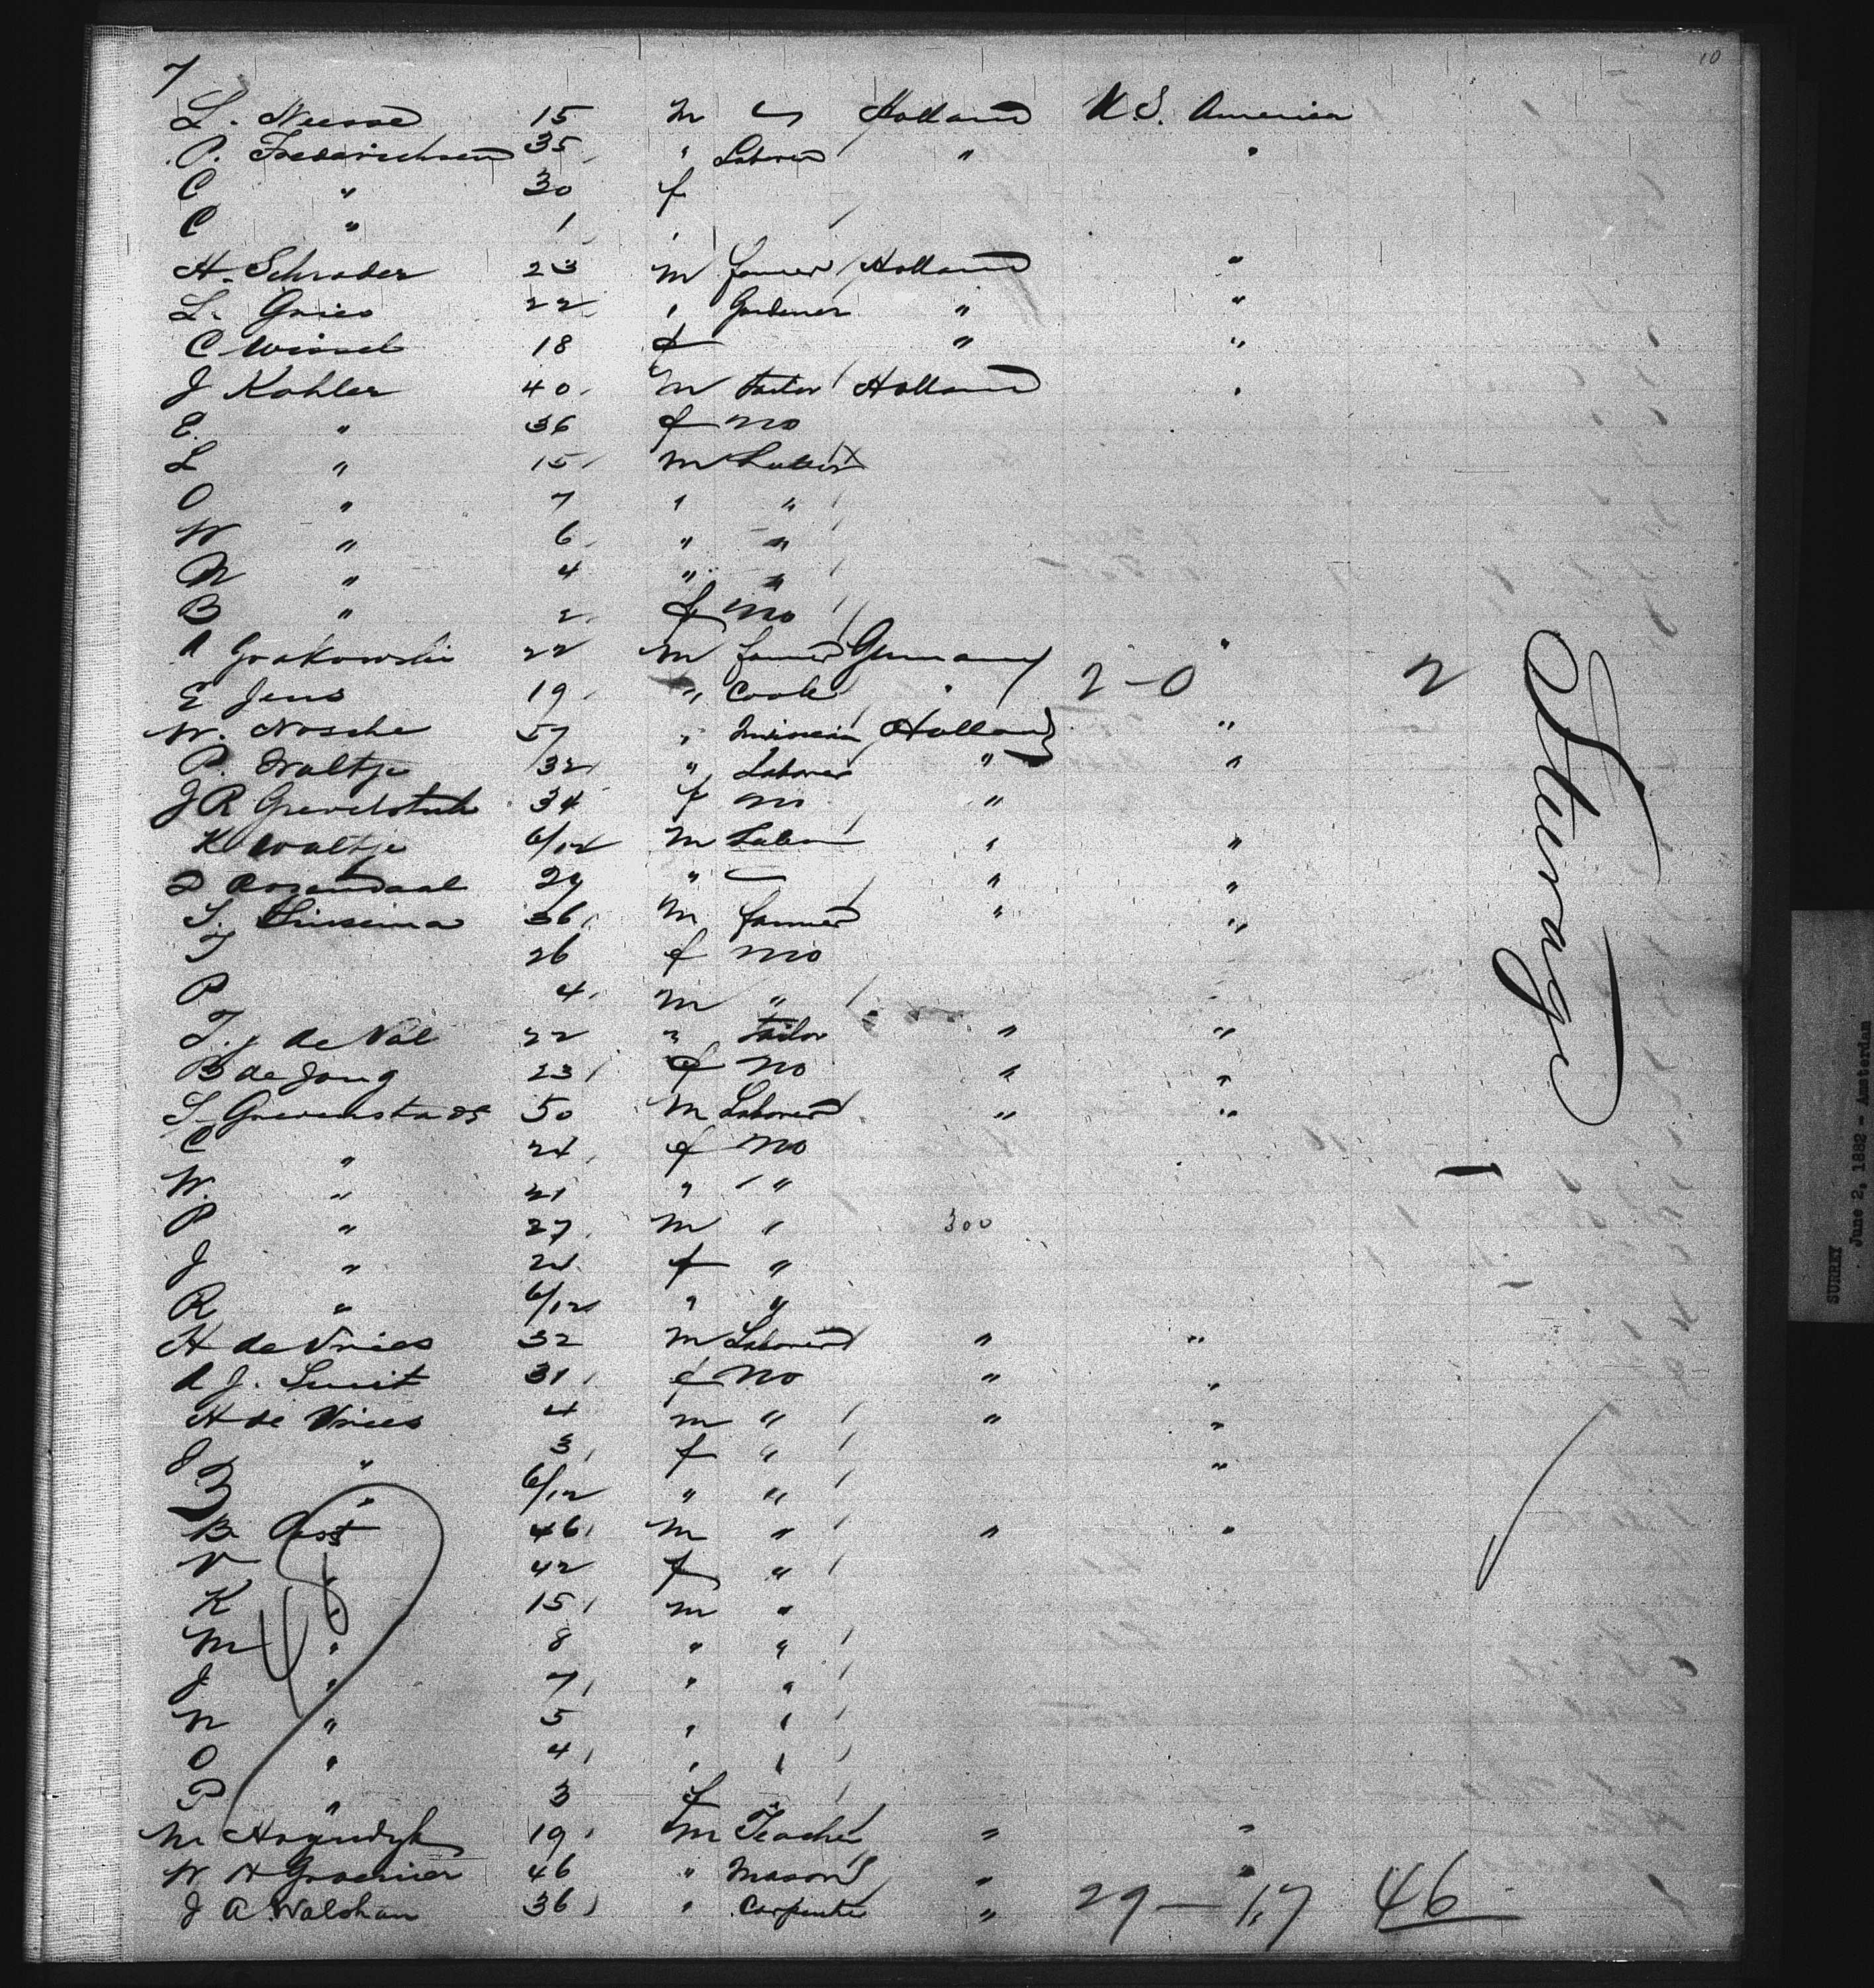 10
7
L. Neesse 15 m " Holland U.S. America
P. Frederichsen 35 " Laborer " "
C " 30 f
C " 1 "
H. Schrader 23 m farmer Holland "
L. Gries 22 " Gardener " "
C Wissel 18 f " "
J Kohler 40 m tailor Holland "
E. " 36 f no
L " 15 m Labor
O " 7 " "
W " 6 " "
N " 4 " "
B " 2 f no
A Grakowski 22 m farmer Germany "
E Jens 19 " Cook " 2-0 2
W. Nosche 57 " Holland "
P. Waltje 32 " Laborer " "
J R 34 f no "
K Waltje 6/12 m " "
Rosendaal 29 " — " "
S. 36 m farmer " "
T 26 f no
P 4 m "
T. de Val 22 " tailor " "
B de Jong 23 f no " "
S. 50 m Laborer " "
C " 24 f no
W. " 21 " "
P " 27 m " 300
J " 21 f "
R " 6/12 " "
H de Vries 32 m Laborer " "
A J. Smit 31 f no " "
H de Vries 4 m " " "
J " 3 f " "
B " 6/12 " "
B. Post 46 m " " "
V 42 f "
K 15 m "
M " 8 " "
J " 7 " "
N " 5 " "
O " 4 " "
P " 3 f "
M Hogendyk 19 m Teacher " "
W H 46 " Mason " "
J A. Walshan 36 " Carpenter " 29 — 17 46
Sturage
48
SURREY
June 2, 1882 - Amsterdam